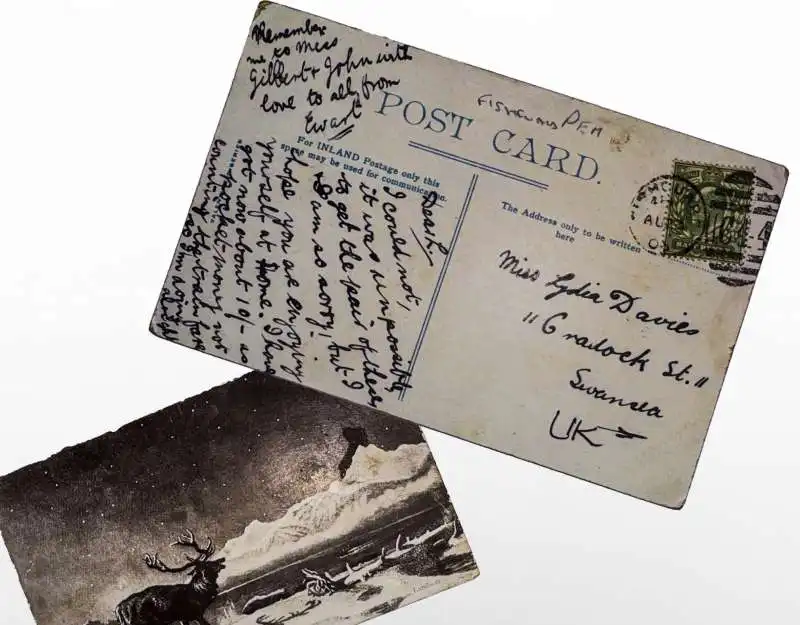 Remember
me to Miss
Gilbert & John with
love to all from
Ewart
FISHGUARD PEM
POST CARD.
For INLAND Postage only this
space may be used for communication.
The Address only to be written
here
AU
Dear L.
I could not,
it was impossible
to get the pair of these
I am so sorry, but I
hope you are enjoying
yourself at home. I have
got now about 10/- as
pocket money not
counting the train fare
so I'm doing alright
Miss Lydia Davies
"11 Cradock St."
Swansea
UK